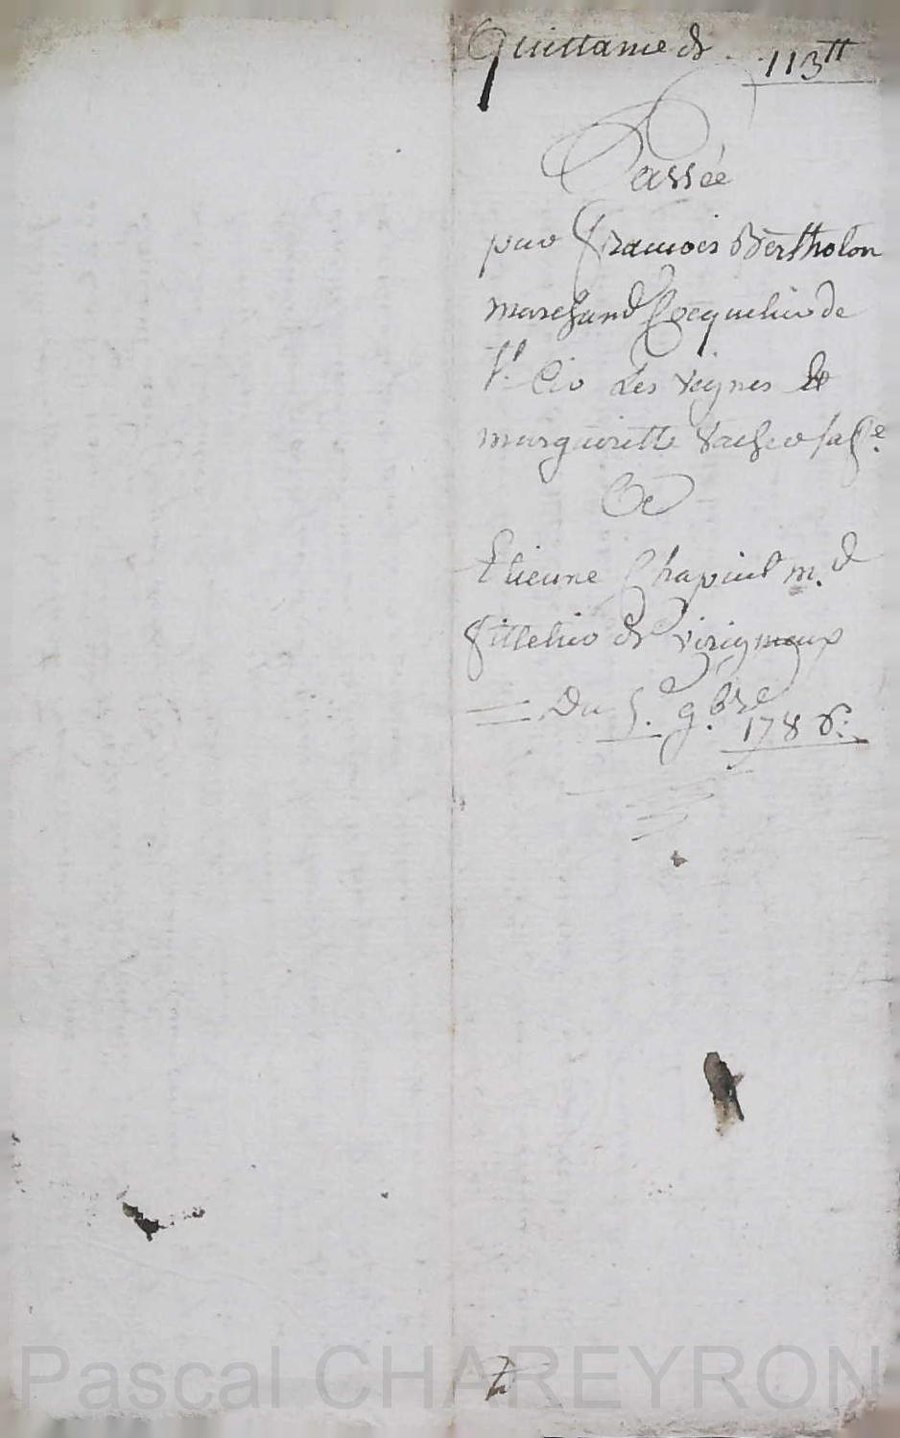 Quittance de 113tt
Passée
par François Bertholon
marchand Cocquetier de
St Cir Les Vignes &
margueritte Vacher sa fe.
A
Etienne Chapuis m.d
de virigneux
Du 5.e 9.bre 1786.
Pascal CHAREYRON